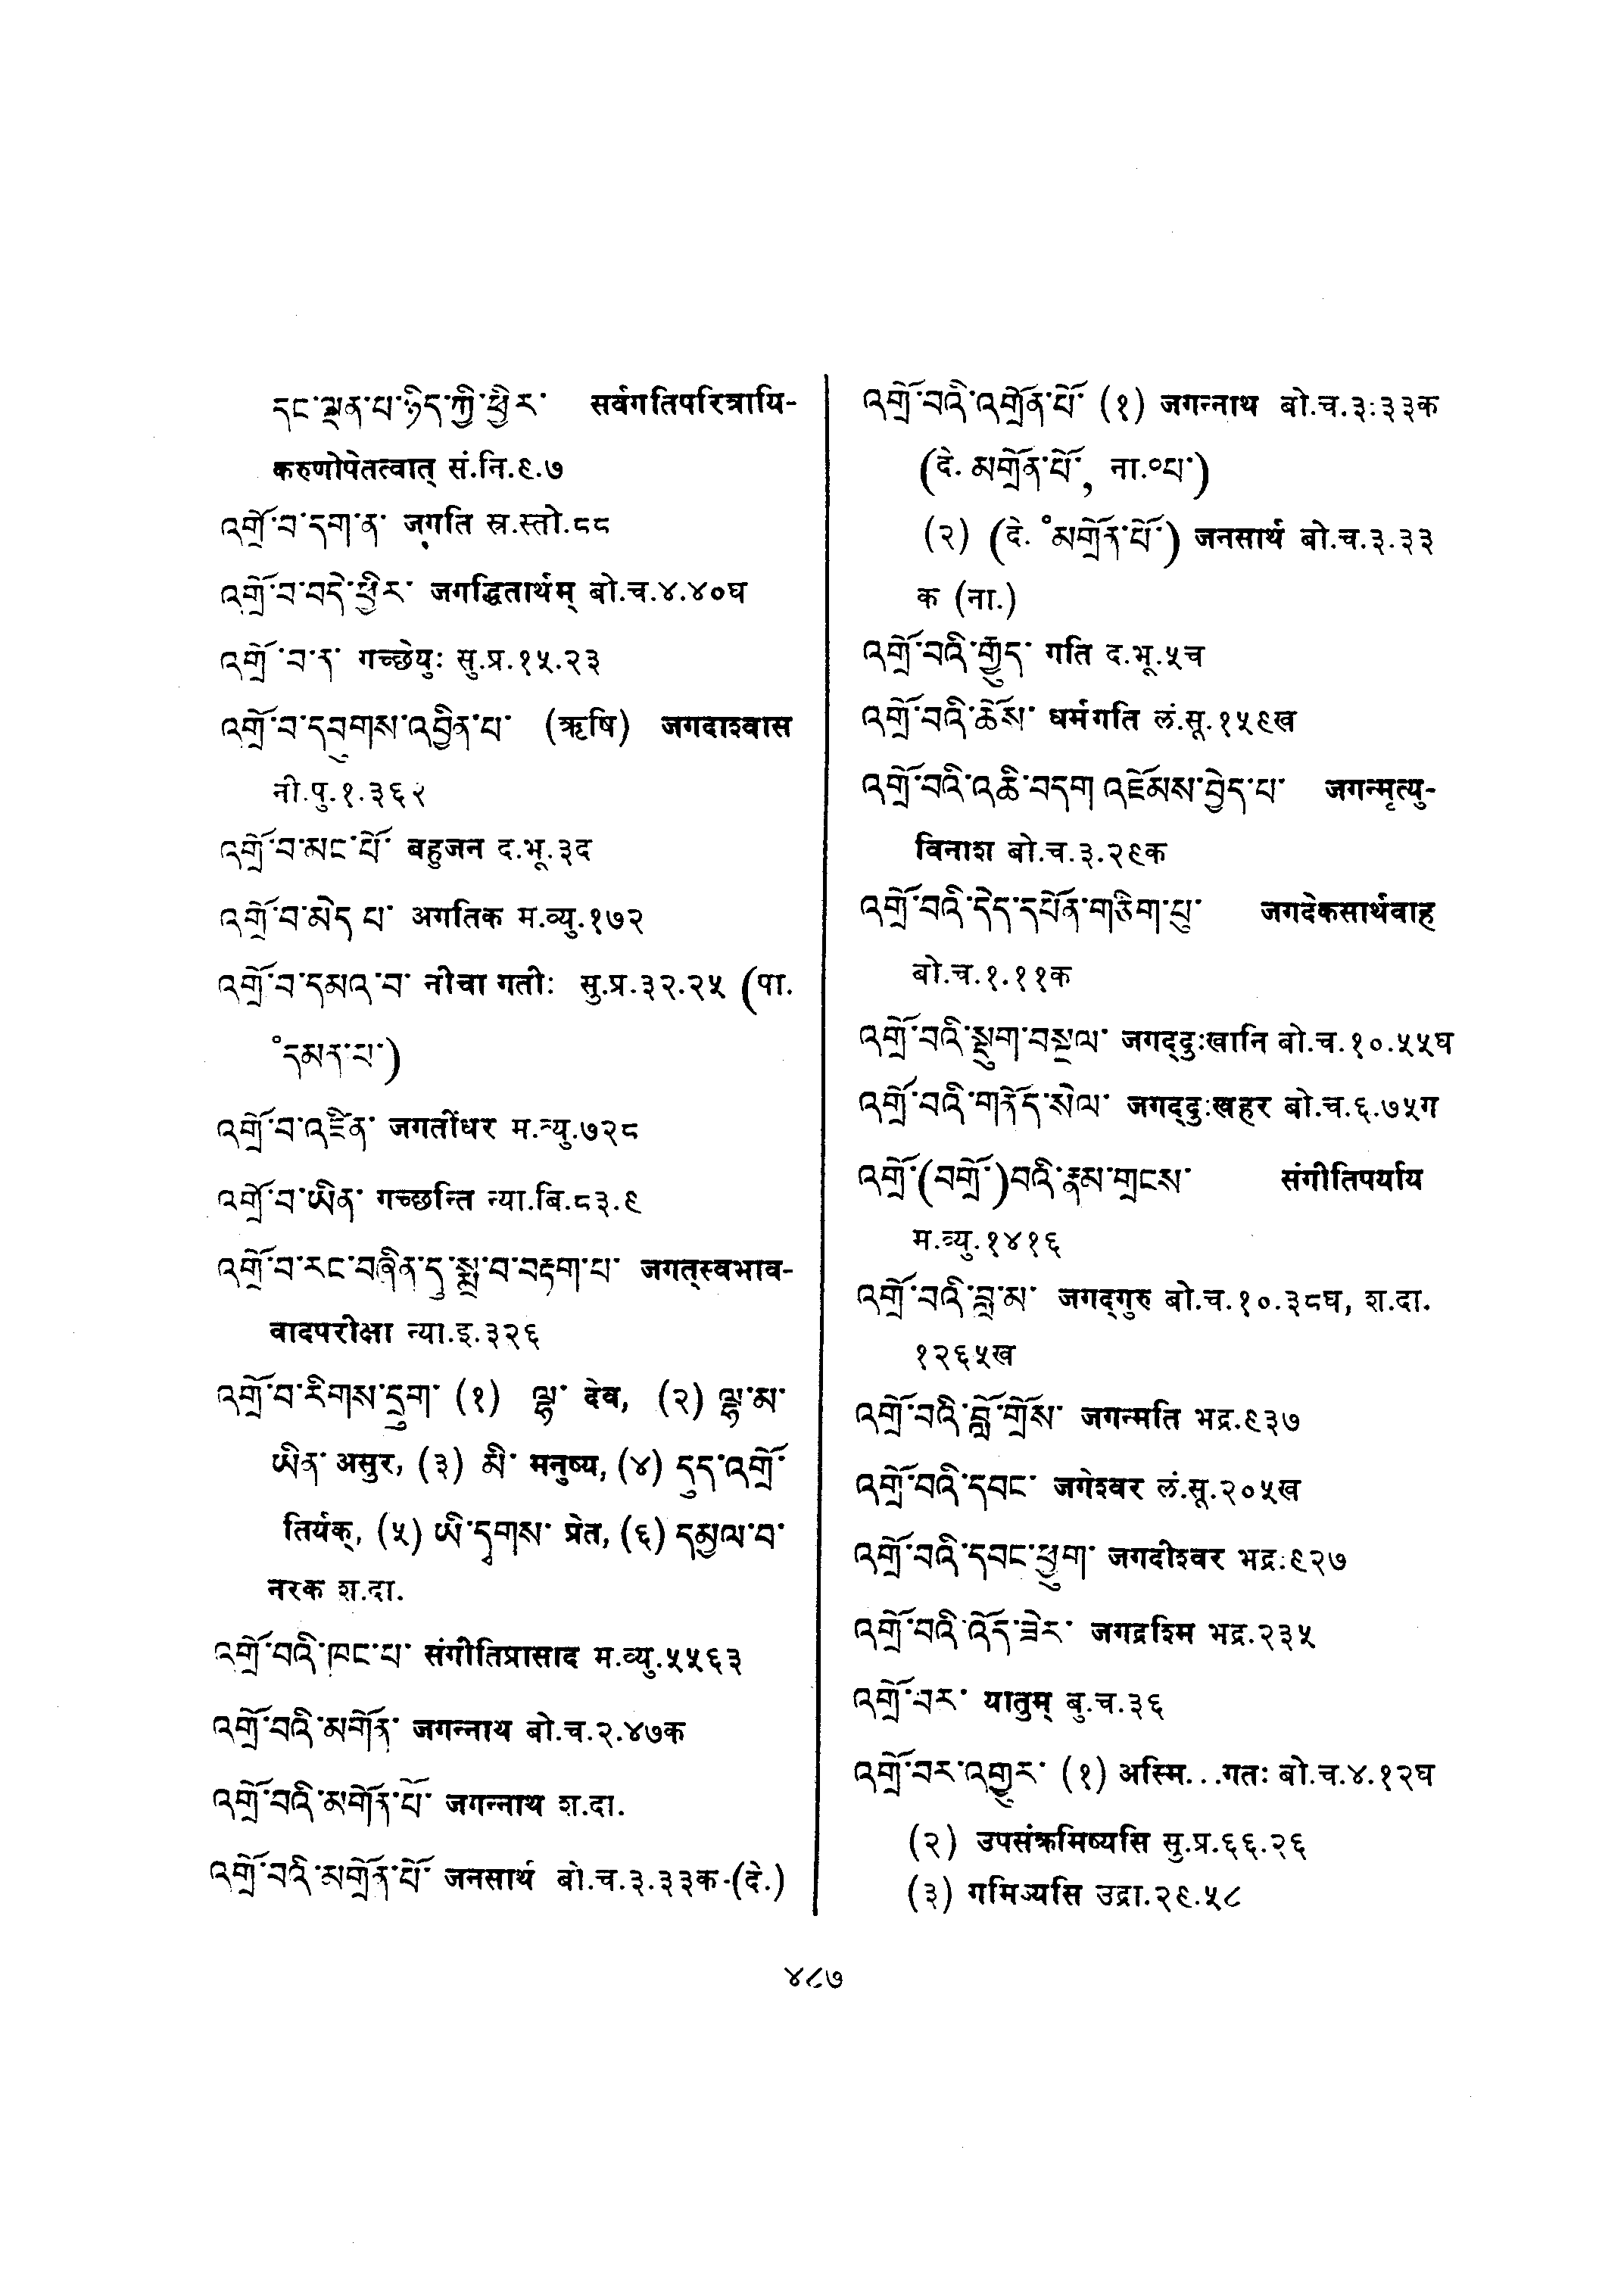 དང་ལྡན་པ་ཉིད་ཀྱི་ཕྱིར་ सर्वगतिपरित्रायि-
करुणोपेतत्वात् सं.नि.९.७
འགྲོ་བ་དག་ན་ जगति स्र.स्तो.८८
འགྲོ་བ་བདེ་ཕྱིར་ जगद्धितार्थम् बो.च.४.४०घ
འགྲོ་བ་ན་ गच्छेयुः सु.प्र.१५.२३
འགྲོ་བ་དབུགས་འབྱིན་པ་ (ऋषि) जगदाश्वास
नी.पु.१.३६२
འགྲོ་བ་མང་པོ་ बहुजन द.भू.३द
འགྲོ་བ་མེད་པ་ अगतिक म.व्यु.१७२
འགྲོ་བ་དམའ་བ་ नीचा गतीः सु.प्र.३२.२५ (पा.
°དམན་པ་)
འགྲོ་བ་འཛིན་ जगतींधर म.व्यु.७२८
འགྲོ་བ་ཡིན་ गच्छन्ति न्या.बि.८३.९
འགྲོ་བ་རང་བཞིན་དུ་སྨྲ་བ་བརྟག་པ་ जगत्स्वभाव-
वादपरीक्षा न्या.इ.३२६
འགྲོ་བ་རིགས་དྲུག་ (१) ལྷ་ देव, (२) ལྷ་མ་
ཡིན་ असुर, (३) མི་ मनुष्य, (४) དུད་འགྲོ་
तिर्यक्, (५) ཡི་དྭགས་ प्रेत, (६) དམྱལ་བ་
नरक श.दा.
འགྲོ་བའི་ཁང་པ་ संगीतिप्रासाद म.व्यु.५५६३
འགྲོ་བའི་མགོན་ जगन्नाथ बो.च.२.४७क
འགྲོ་བའི་མགོན་པོ་ जगन्नाथ श.दा.
འགྲོ་བའི་མགྲོན་པོ་ जनसार्थ बो.च.३.३३क-(दे.)
འགྲོ་བའི་འགྲོན་པོ་ (१) जगन्नाथ बो.च.३:३३क
(दे. མགྲོན་པོ་, ना.°པ་)
(२) (दे. °མགྲོན་པོ་) जनसार्थ बो.च.३.३३
क (ना.)
འགྲོ་བའི་རྒྱུད་ गति द.भू.५च
འགྲོ་བའི་ཆོས་ धर्मगति लं.सू.१५९ख
འགྲོ་བའི་འཆི་བདག་འཇོམས་བྱེད་པ་ जगन्मृत्यु-
विनाश बो.च.३.२९क
འགྲོ་བའི་དེད་དཔོན་གཅིག་པུ་ जगदेकसार्थवाह
बो.च.१.११क
འགྲོ་བའི་སྡུག་བསྔལ་ जगद्दुःखानि बो.च.१०.५५घ
འགྲོ་བའི་གནོད་སེལ་ जगद्दुःखहर बो.च.६.७५ग
འགྲོ་(བགྲོ་)བའི་རྣམ་གྲངས་ संगीतिपर्याय
म.व्यु.१४१६
འགྲོ་བའི་བླ་མ་ जगद्गुरु बो.च.१०.३८घ, श.दा.
१२६५ख
འགྲོ་བའི་བློ་གྲོས་ जगन्मति भद्र.९३७
འགྲོ་བའི་དབང་ जगेश्वर लं.सू.२०५ख
འགྲོ་བའི་དབང་ཕྱུག་ जगदीश्वर भद्र.९२७
འགྲོ་བའི་འོད་ཟེར་ जगद्रश्मि भद्र.२३५
འགྲོ་བར་ यातुम् बु.च.३६
འགྲོ་བར་འགྱུར་ (१) अस्मि...गतः बो.च.४.१२घ
(२) उपसंक्रमिष्यसि सु.प्र.६६.२६
(३) गमिष्यसि उद्रा.२९.५८
४८७